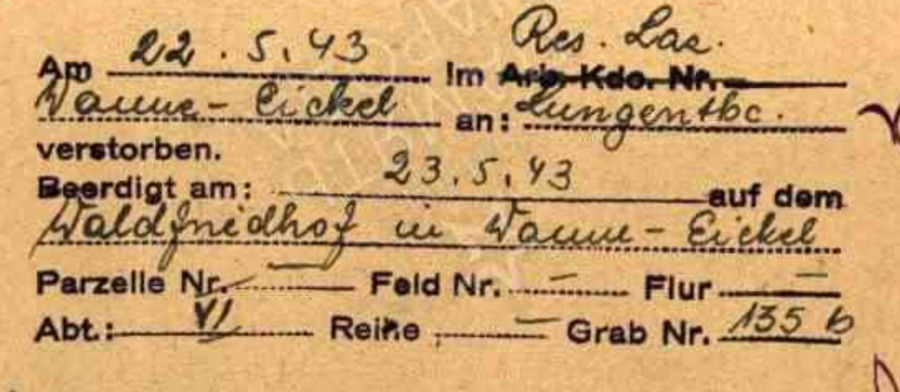 Res. Laz.
Am 22.5.43 im Arb. Kdo. Nr.
Wanne-Eickel an: Lungentbc.
verstorben.
Beerdigt am: 23.5.43 auf dem
Waldfriedhof in Wanne-Eickel
Parzelle Nr. — Feld Nr. — Flur —
Abt.: VI Reihe — Grab Nr. 135 b